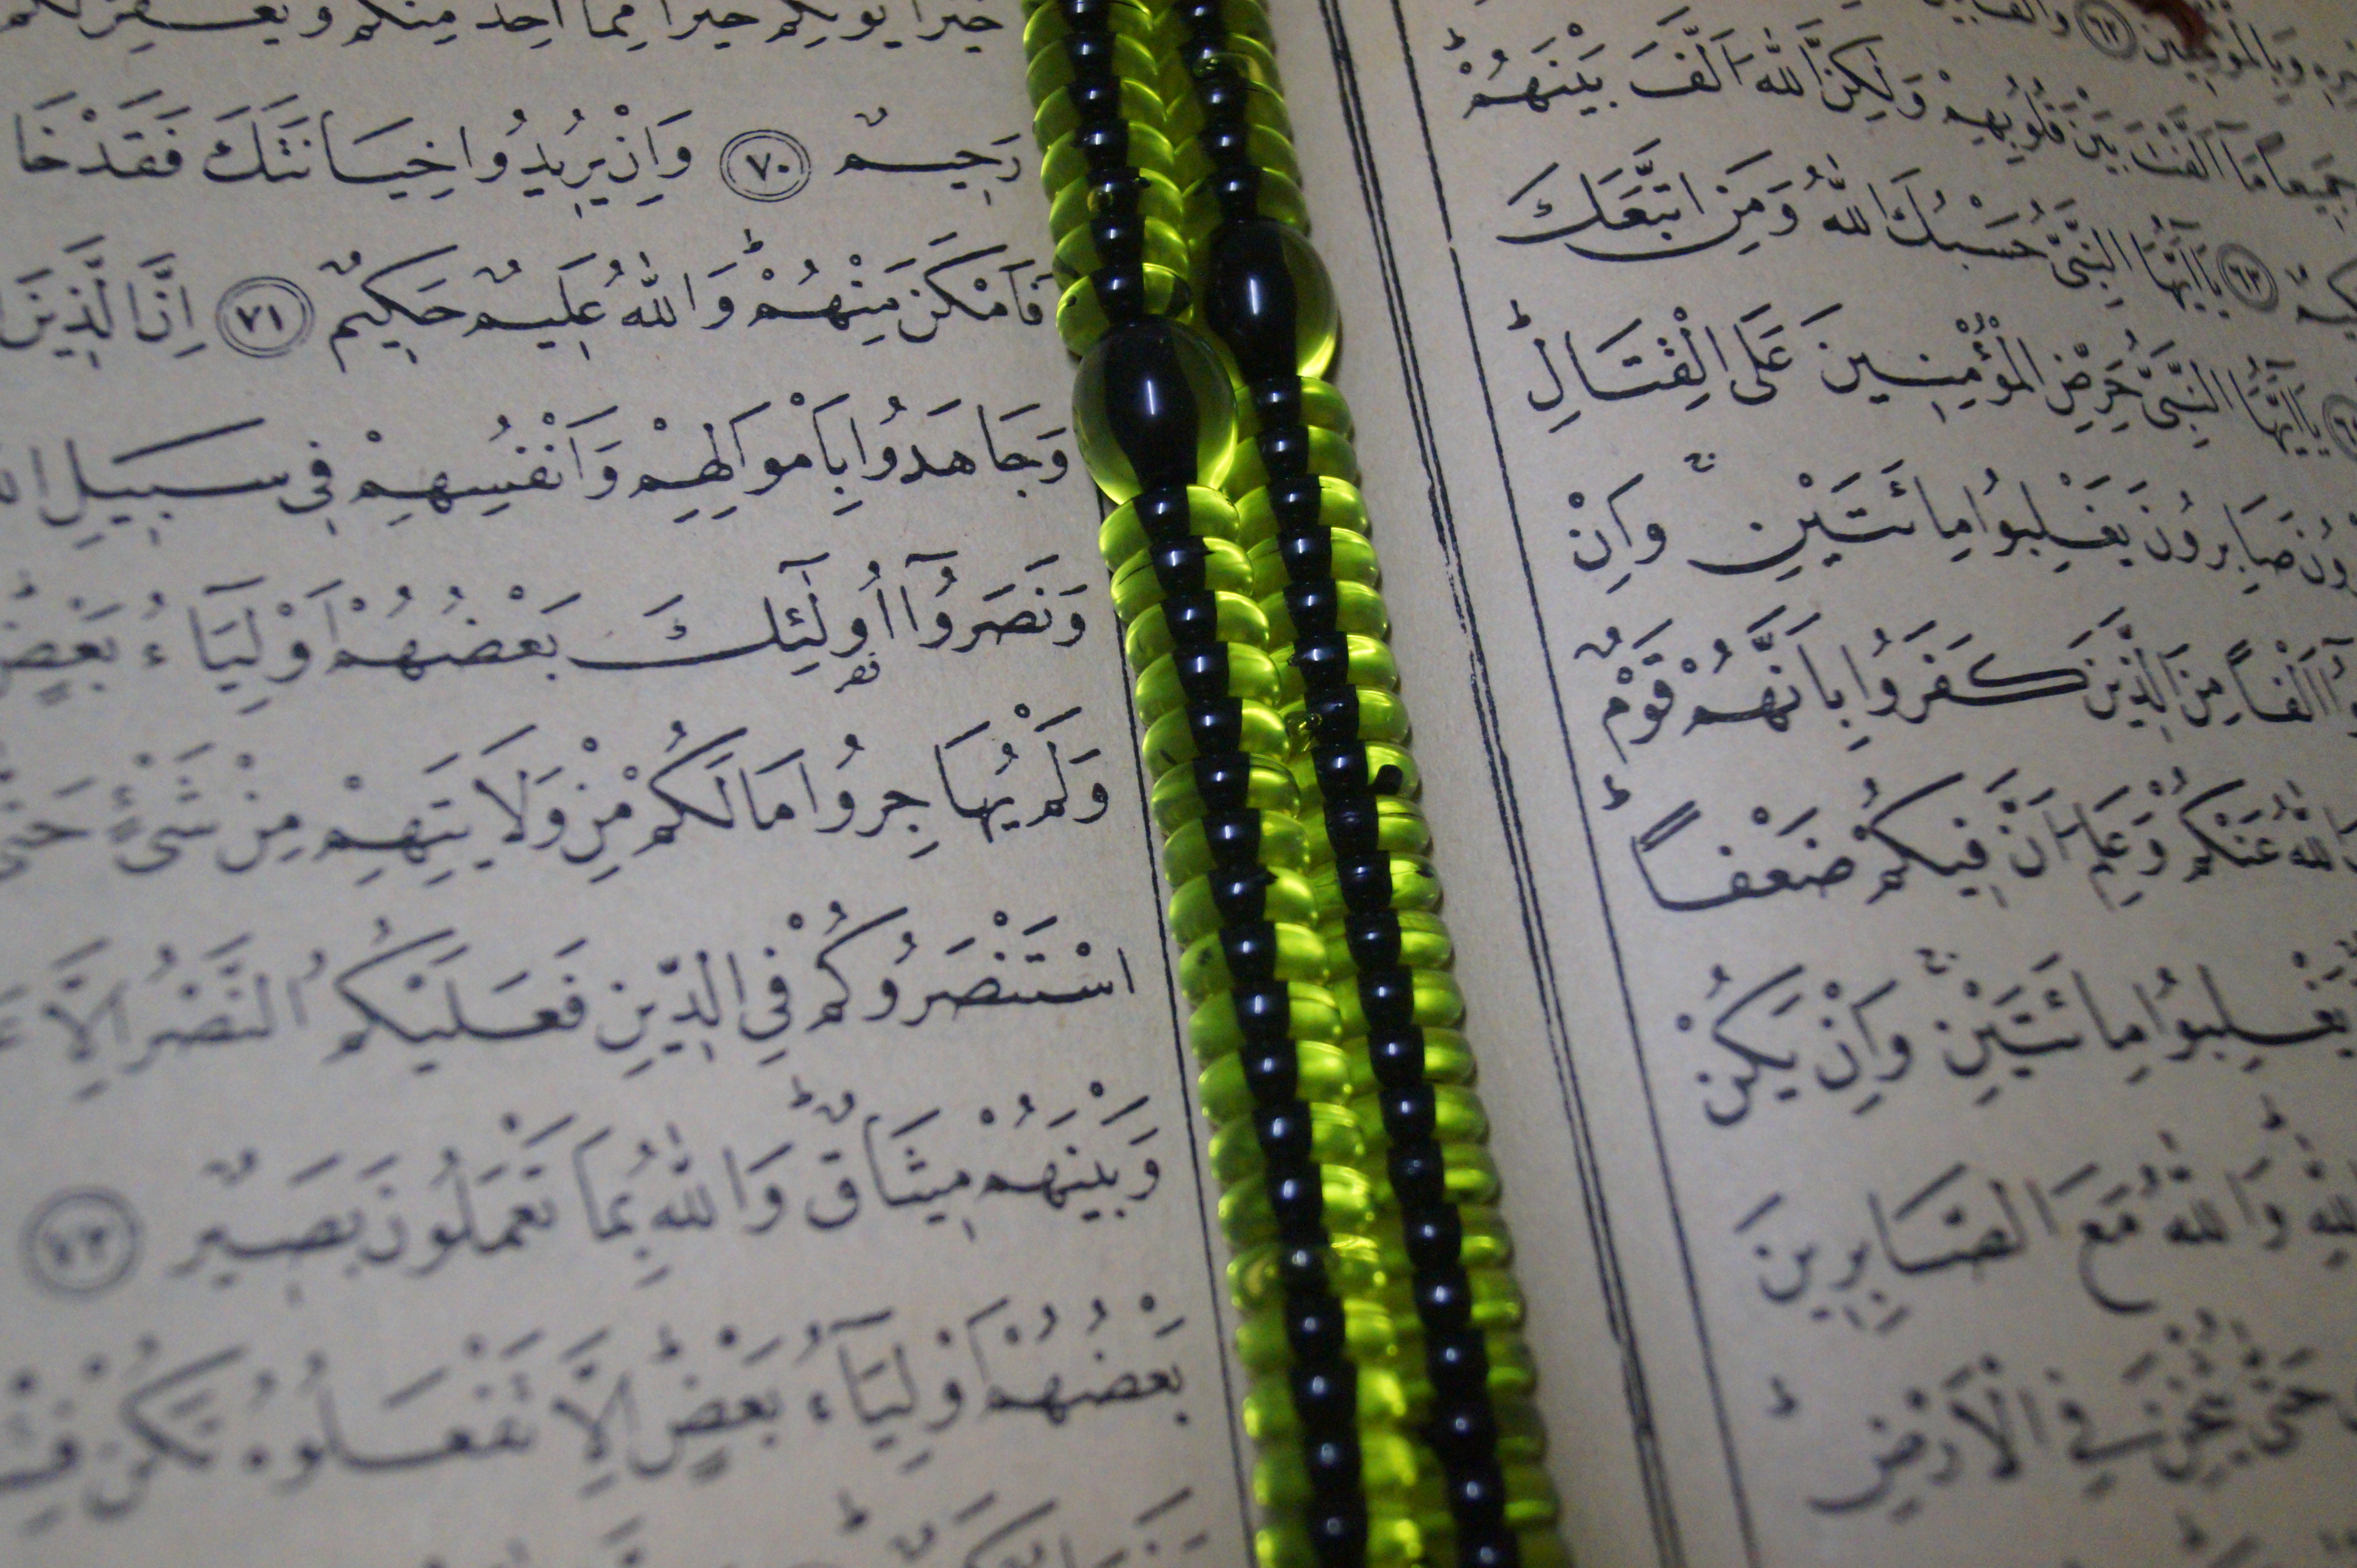 جَمِيعاً مَٓا اَلَّفْتَ بَيْنَ قُلُوبِهِمْ وَلٰكِنَّ اللّٰهَ اَلَّفَ بَيْنَهُمْۜ
﴿٦٣﴾ يَٓا اَيُّهَا النَّبِيُّ حَسْبُكَ اللّٰهُ وَمَنِ اتَّبَعَكَ
يَٓا اَيُّهَا النَّبِيُّ حَرِّضِ الْمُؤْمِنِينَ عَلَى الْقِتَالِۜ
صَابِرُونَ يَغْلِبُوا مِائَتَيْنِۚ وَاِنْ
اَلْفاً مِنَ الَّذِينَ كَفَرُوا بِاَنَّهُمْ قَوْمٌ
اللّٰهُ عَنْكُمْ وَعَلِمَ اَنَّ فِيكُمْ ضَعْفاًۜ
يَغْلِبُوا مِائَتَيْنِۚ وَاِنْ يَكُنْ
وَاللّٰهُ مَعَ الصَّابِرِينَ
حَتّٰى يُثْخِنَ فِي الْاَرْضِۜ
خَيْراً يُؤْتِكُمْ خَيْراً مِمَّٓا اُخِذَ مِنْكُمْ وَيَغْفِرْ لَكُمْ
رَحِيمٌ ﴿٧٠﴾ وَاِنْ يُرِيدُوا خِيَانَتَكَ فَقَدْ خَا
فَاَمْكَنَ مِنْهُمْۜ وَاللّٰهُ عَلِيمٌ حَكِيمٌ ﴿٧١﴾ اِنَّ الَّذِينَ
وَجَاهَدُوا بِاَمْوَالِهِمْ وَاَنْفُسِهِمْ فِي سَبِيلِ
وَنَصَرُٓوا اُو۬لٰٓئِكَ بَعْضُهُمْ اَوْلِيَٓاءُ بَعْضٍۜ
وَلَمْ يُهَاجِرُوا مَا لَكُمْ مِنْ وَلَايَتِهِمْ مِنْ شَيْءٍ حَتّٰى
اسْتَنْصَرُوكُمْ فِي الدِّينِ فَعَلَيْكُمُ النَّصْرُ اِلَّا
وَبَيْنَهُمْ مِيثَاقٌۜ وَاللّٰهُ بِمَا تَعْمَلُونَ بَصِيرٌ ﴿٧٢﴾
بَعْضُهُمْ اَوْلِيَٓاءُ بَعْضٍۜ اِلَّا تَفْعَلُوهُ تَكُنْ